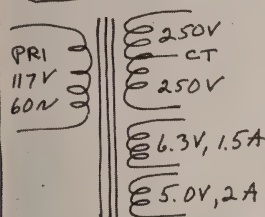 PRI
117V
60~
250V
CT
250V
6.3V, 1.5A
5.0V, 2A